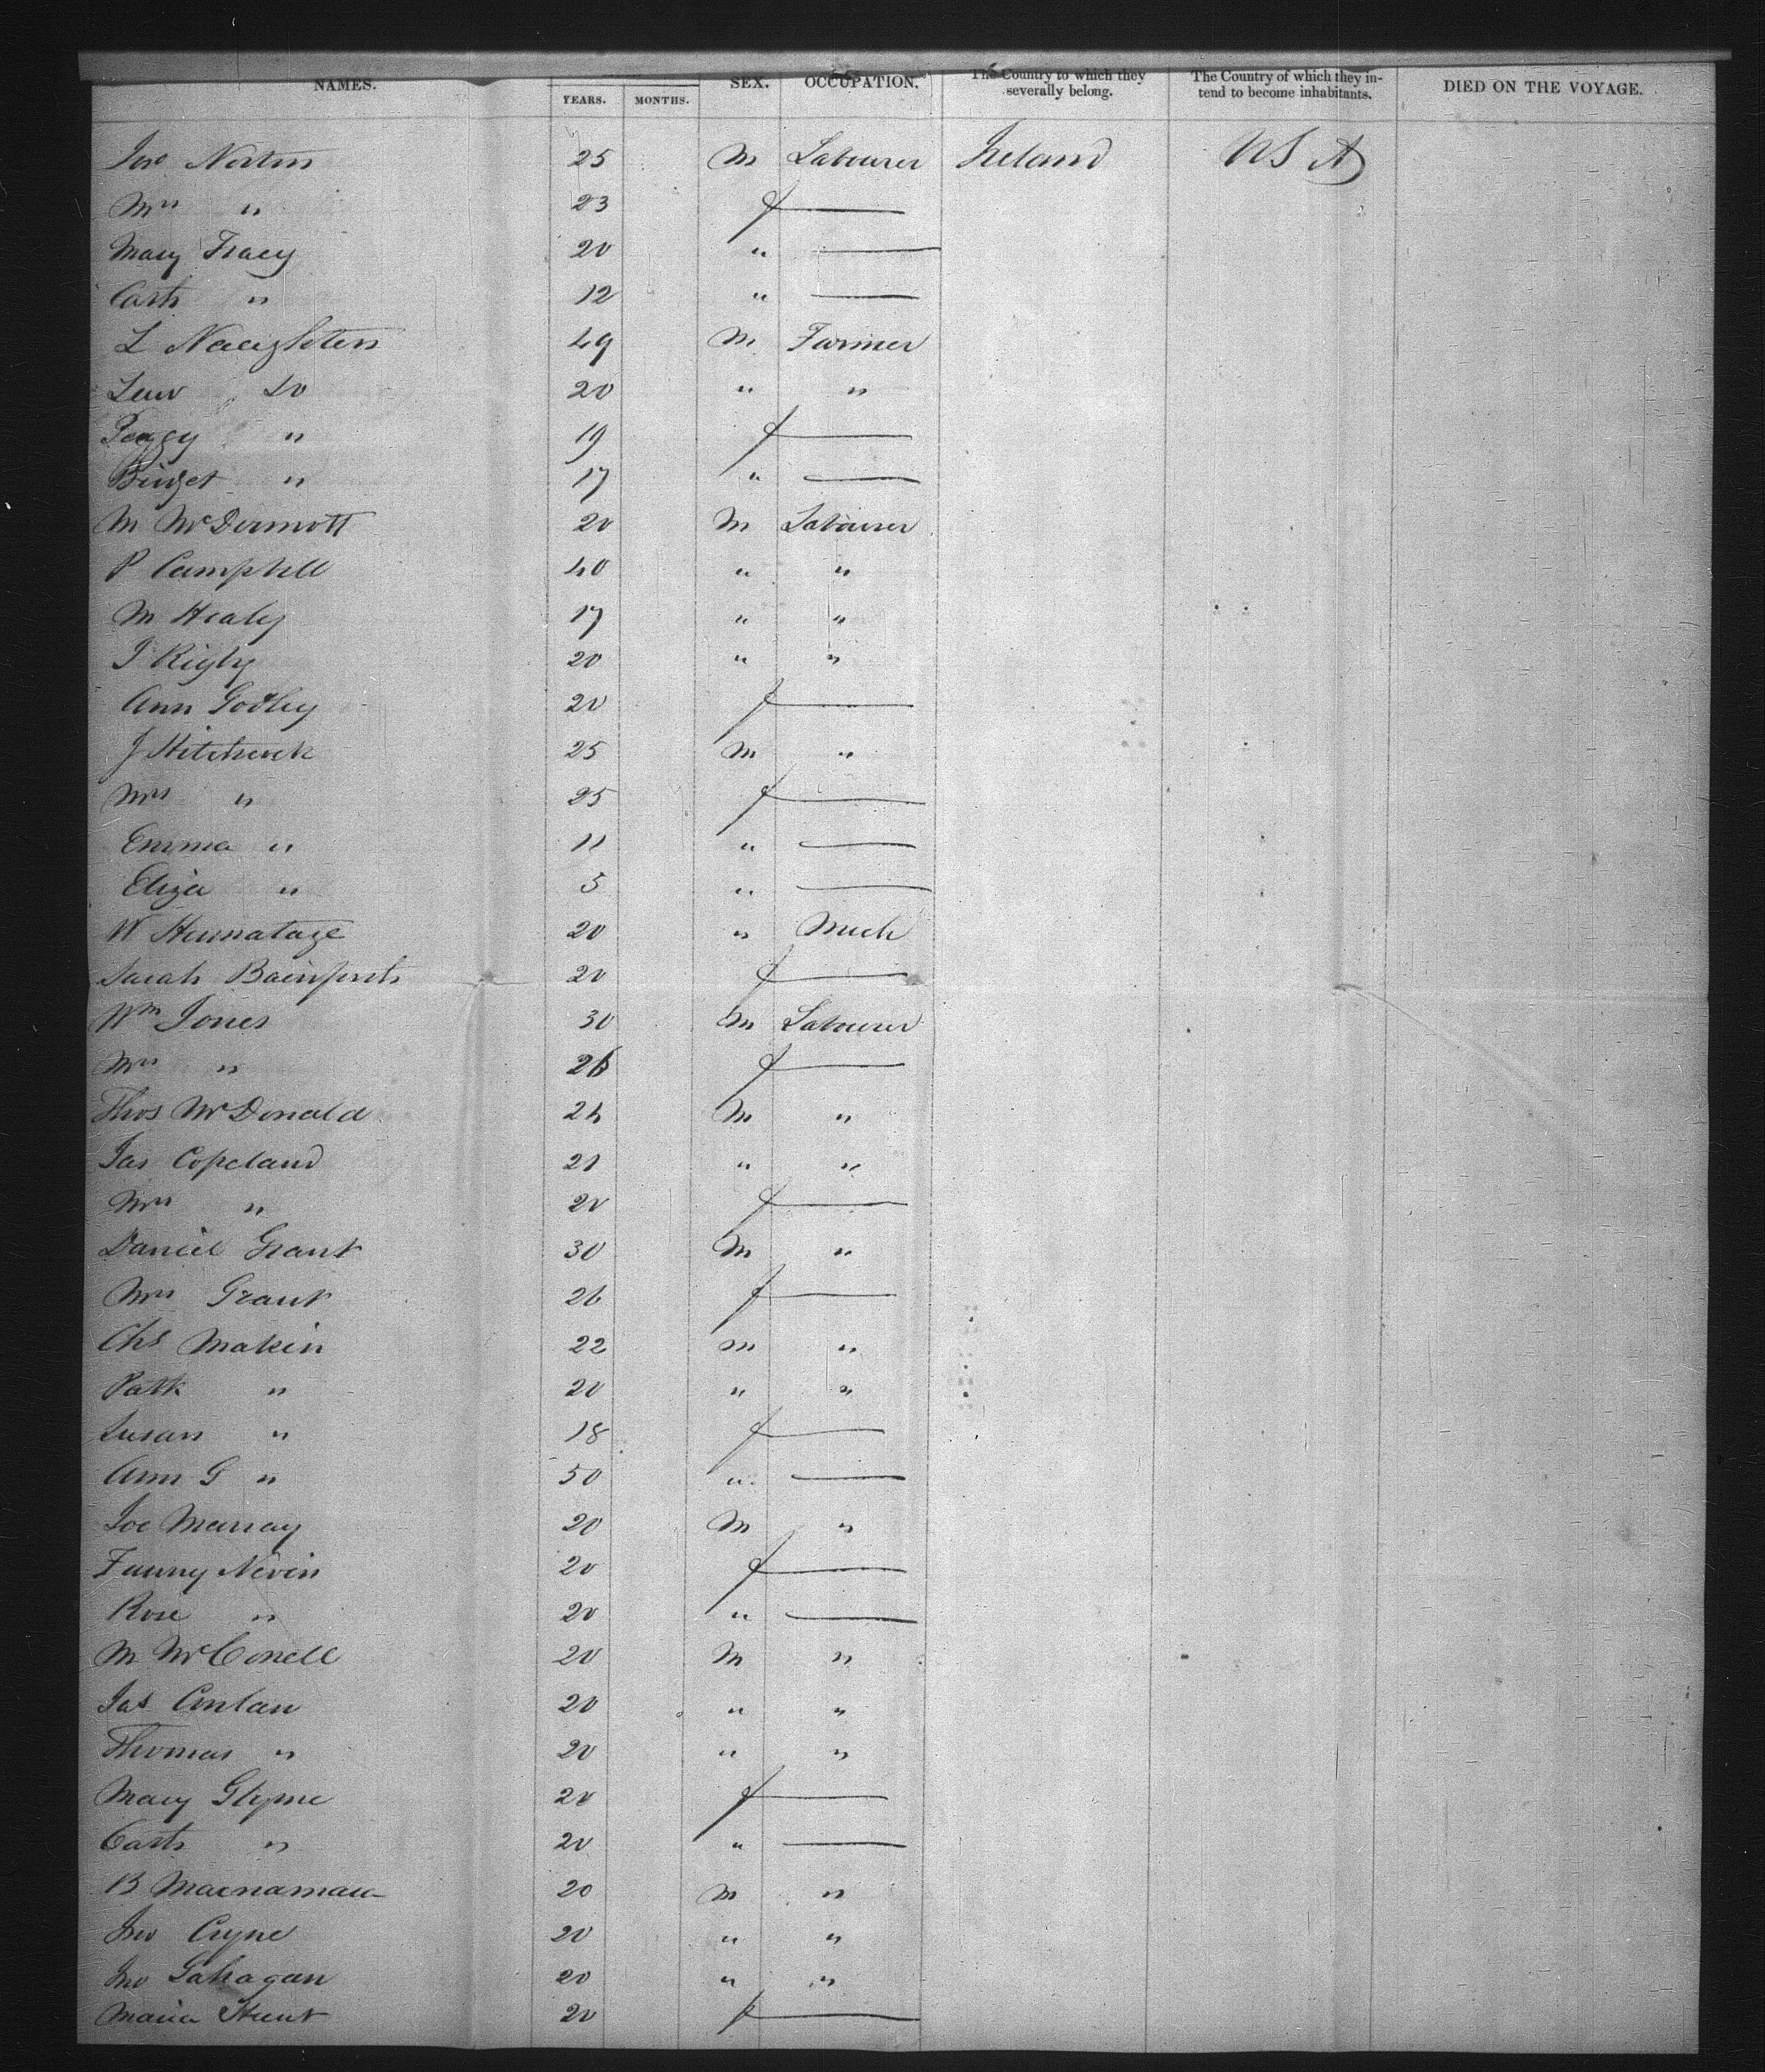 NAMES. YEARS. MONTHS. SEX. OCCUPATION. The Country to which they severally belong. The Country of which they intend to become inhabitants. DIED ON THE VOYAGE.
Norton 25 M Labourer Ireland U S A
Mrs " 23 f —
Mary Tracy 20 " —
Cath " 12 " —
L Naughton 49 M Farmer
Do 20 " "
Peggy " 19 f —
Bridget " 17 " —
M McDermott 20 M Labourer
P Campbell 40 " "
M Healy 17 " "
J Rigby 20 " "
Ann Godley 20 f —
J Hitchcock 25 M "
Mrs " 25 f —
Emma " 11 " —
Eliza " 5 " —
W 20 " Mech
Sarah 20 f —
Wm Jones 30 M Labourer
Mrs " 26 f —
Thos McDonald 24 M "
Jas Copeland 21 " "
Mrs " 20 f —
Daniel Grant 30 M "
Mrs Grant 26 f —
Chs Makin 22 M "
Patk " 20 " "
Susan " 18 f —
Ann G " 50 " —
Joe Murray 20 M "
Fanny Nevin 20 f —
Rose " 20 " —
M McConell 20 M "
Jas Conlan 20 " "
Thomas " 20 " "
Mary Glynne 20 f —
Cath " 20 " —
B Macnamara 20 M "
Jno Cryne 20 " "
Jno Gahagan 20 " "
Maria Hunt 20 f —